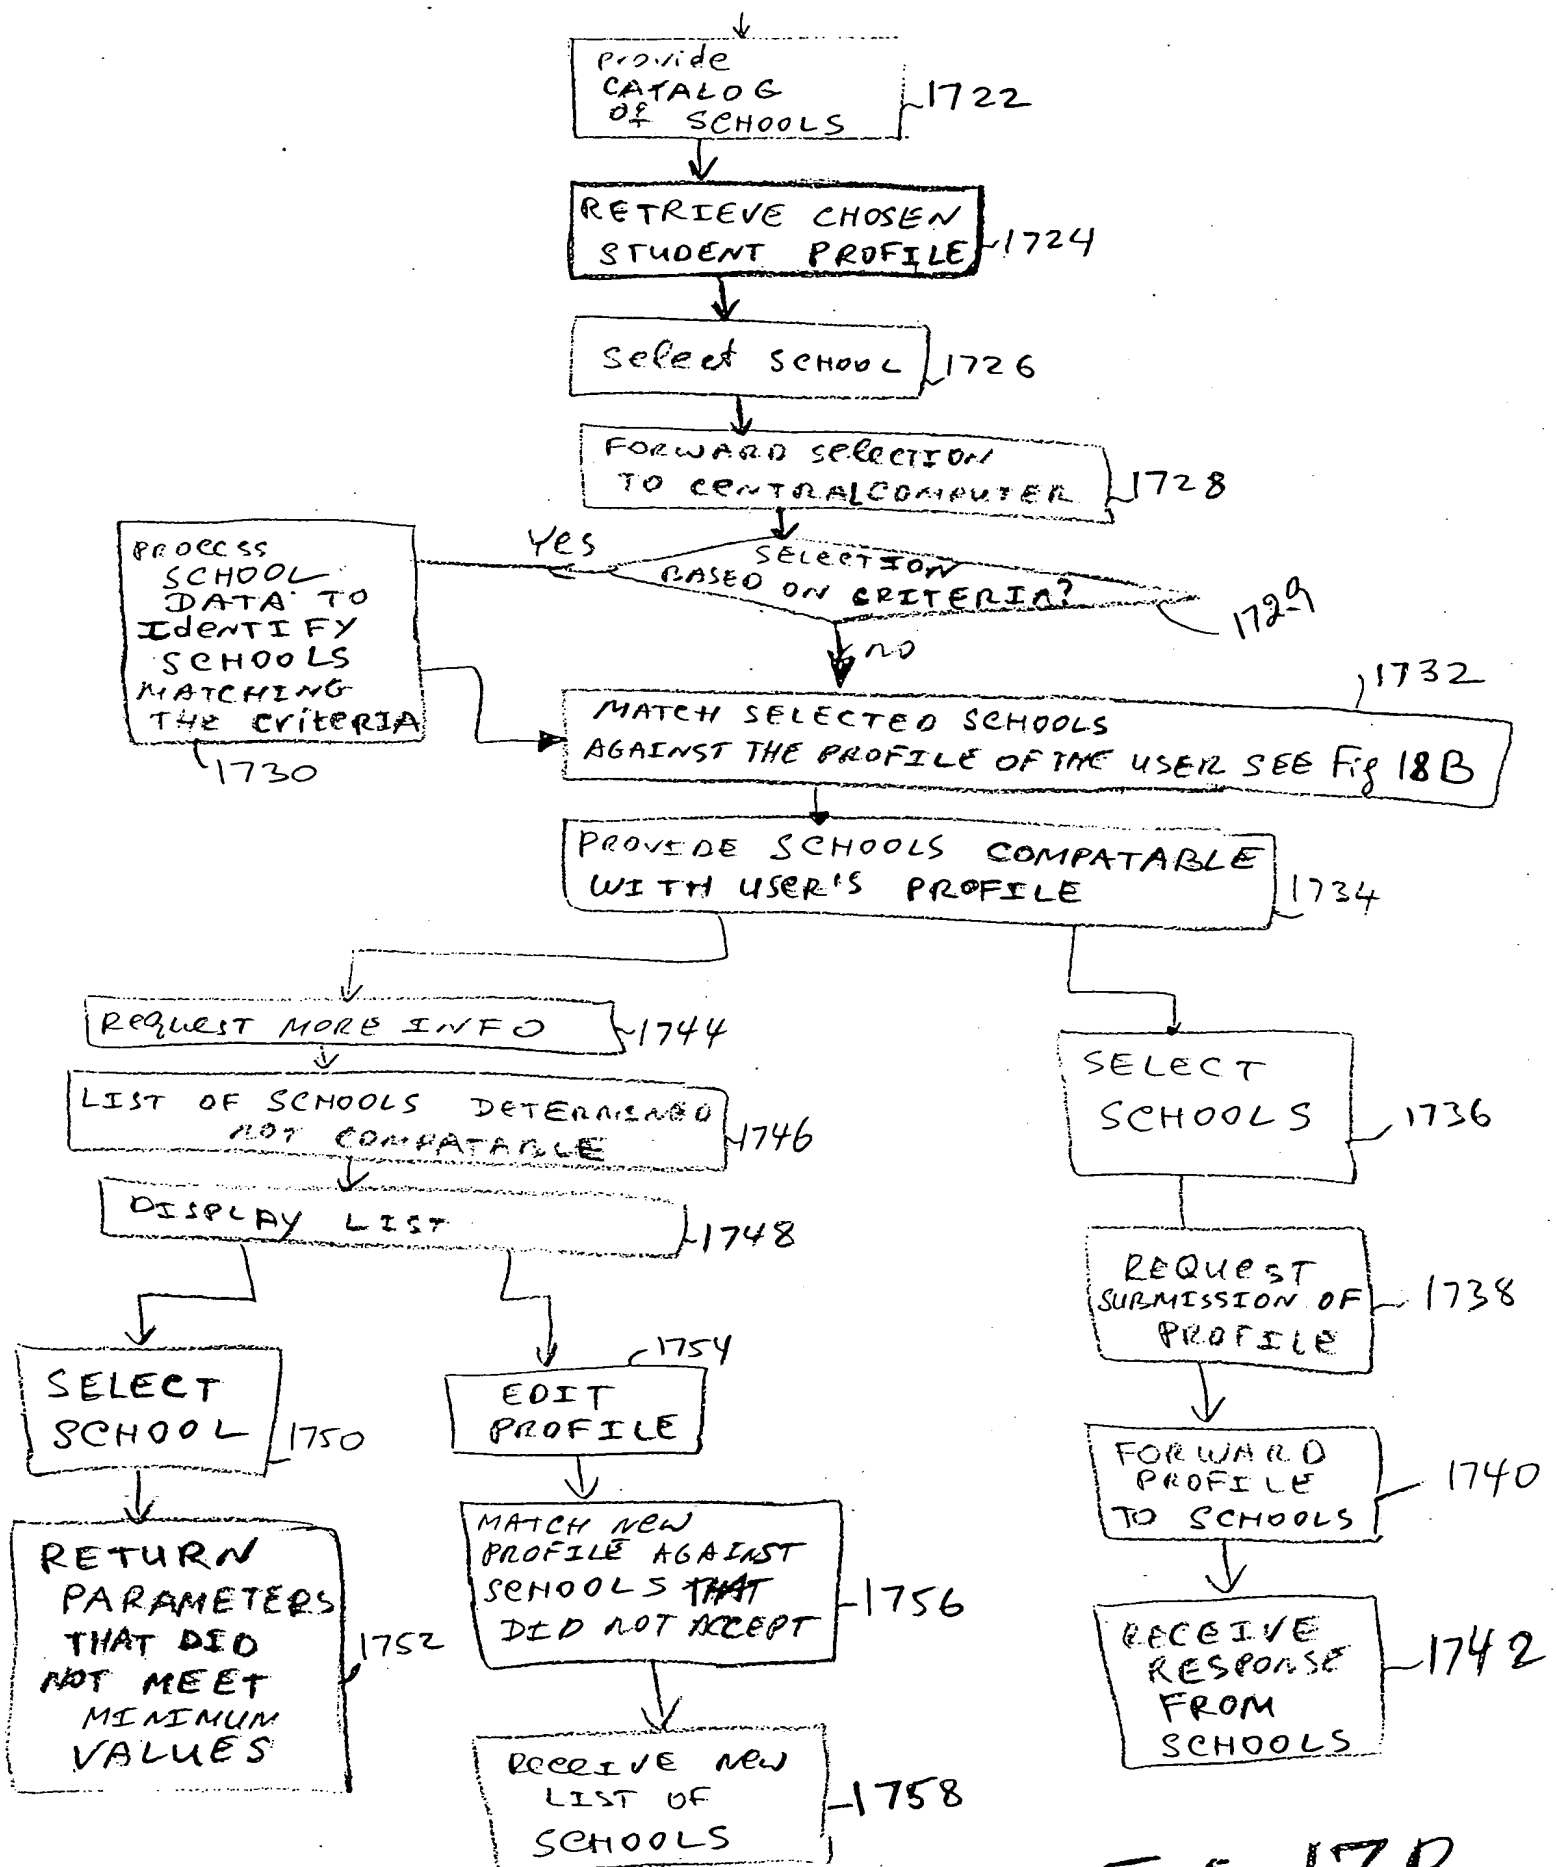 provide
CATALOG
OF SCHOOLS
1722
RETRIEVE CHOSEN
STUDENT PROFILE
1724
Select SCHOOL
1726
FORWARD SELECTION
TO CENTRAL COMPUTER
1728
SELECTION
BASED ON CRITERIA?
1729
Yes
no
PROCESS
SCHOOL
DATA TO
IdENTIFY
SCHOOLS
MATCHING
THE CriteRIA
1730
1732
MATCH SELECTED SCHOOLS
AGAINST THE PROFILE OF THE USER SEE Fig 18B
PROVIDE SCHOOLS COMPATABLE
WITH USER'S PROFILE
1734
REQUEST MORE INFO
1744
LIST OF SCHOOLS DETERMINED
NOT COMPATABLE
1746
DISPLAY LIST
1748
SELECT
SCHOOL
1750
RETURN
PARAMETERS
THAT DID
NOT MEET
MINIMUM
VALUES
1752
1754
EDIT
PROFILE
MATCH NEW
PROFILE AGAINST
SCHOOLS THAT
DID NOT ACCEPT
1756
RECEIVE NEW
LIST OF
SCHOOLS
1758
SELECT
SCHOOLS
1736
REQUEST
SUBMISSION OF
PROFILE
1738
FORWARD
PROFILE
TO SCHOOLS
1740
RECEIVE
RESPONSE
FROM
SCHOOLS
1742